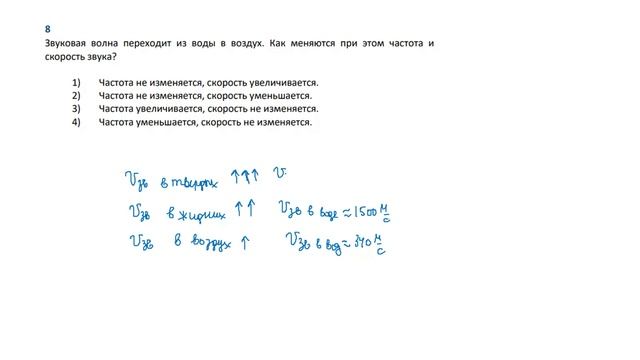 8
Звуковая волна переходит из воды в воздух. Как меняются при этом частота и
скорость звука?
1) Частота не изменяется, скорость увеличивается.
2) Частота не изменяется, скорость уменьшается.
3) Частота увеличивается, скорость не изменяется.
4) Частота уменьшается, скорость не изменяется.
Vзв в твердых ↑↑↑ V
Vзв в жидких ↑↑ Vзв в воде ≈ 1500 м/с
Vзв в воздух ↑ Vзв в воз ≈ 340 м/с